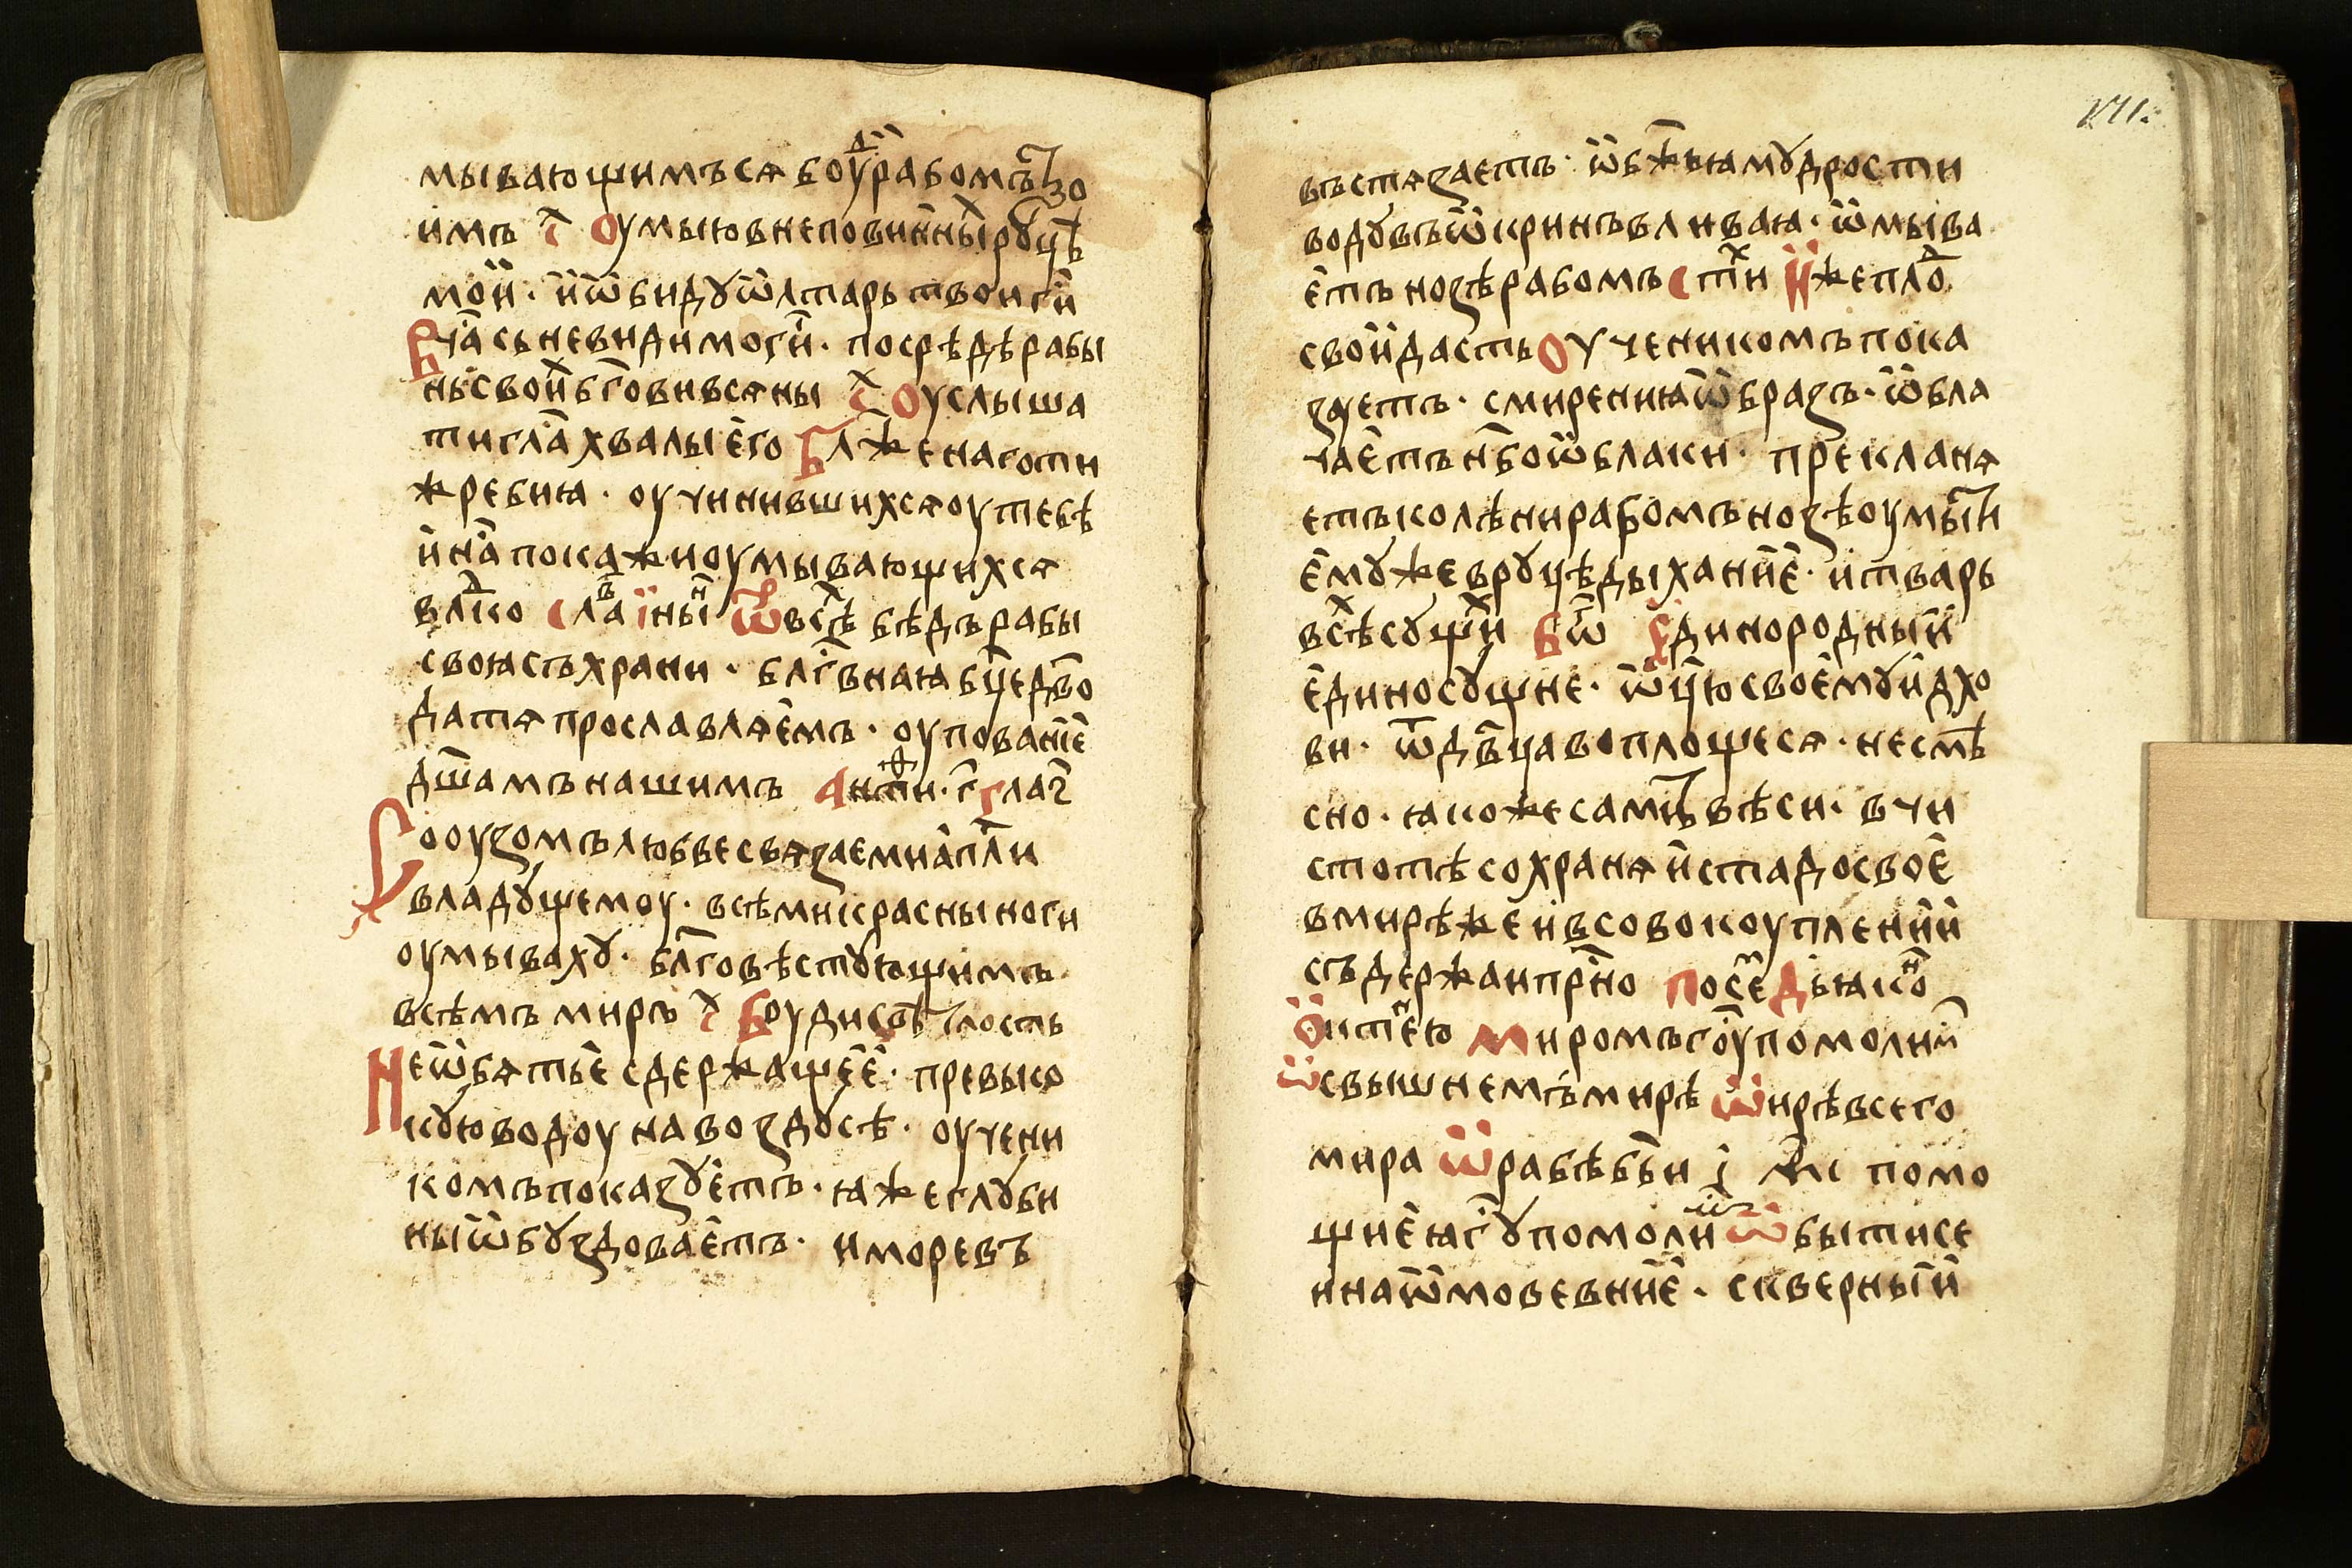 мывающимъся боудꙋ рабомъ ѕо
имъ с҃т҃х Оумыю в неповинных рꙋцѣ
мои· и ѡбидꙋ ѡлтарь твои г҃и
В ча сь невидимо г҃и· посрѣдѣ рабы
нь своих б҃гови вся ны с҃т҃х Оуслыша
ти гла хвалы его Бл҃же наготи
жребия· оучинившихся оу тебѣ
и на покажи оумывающихся
вл҃дко слав i нын Ѿ всѣх бѣдъ рабы
своя съхрани· бл҃гвная б҃це дв҃о
да тя прославляемъ· оупование
дш҃амъ нашимъ Антиф· г҃ глас
Сооузомъ любве связаеми ап҃ли
владꙋщемоу· всѣми красны ноги
оумывахꙋ· бл҃говѣстꙋющимъ
всѣмъ миръ с҃т҃х Боуди свѣтлость
Неѡбятье сдержащее· превыко
кꙋю водоу на воздꙋсѣ· оучени
комъ показꙋетъ· яже глꙋби
ны ѡбꙋздоваетъ· и море въ
171.
въстязаетъ· ѿ б҃жья мꙋдрости
водꙋ въ ѡкринъ вливая· ѿмыва
етъ нозѣ рабомъ стих Иже плод
свои дастъ Оученикомъ пока
зуетъ· смирения ѡбразъ· ѡбла
чаетъ н҃бо ѡблаки· прекланя
етъ колѣни рабомъ нозѣ оумыти
емꙋже в рꙋцѣ дыхание· и тварь
всѣх сꙋщих Бѡ҃г Единородныи
единосꙋщне· ѿц҃ю своемꙋ и д҃хо
ви· ѿ дв҃ца воплощеся· несмѣ
сно· якоже самъ вѣси· в чи
стотѣ сохраняи стадо своe
в мирѣ же и в совокоуплении
съдержаи пр҃но Посем Дьякон
Ѡктению Миромъ г҃оу помолим
Ѡ свышнемъ мирѣ Ѡ мирѣ всего
мира Ѡ рабѣ б҃жи i мк помо
щнея г҃ꙋ помолим Ѡ быти се
и на ѿмовевние· скверныи